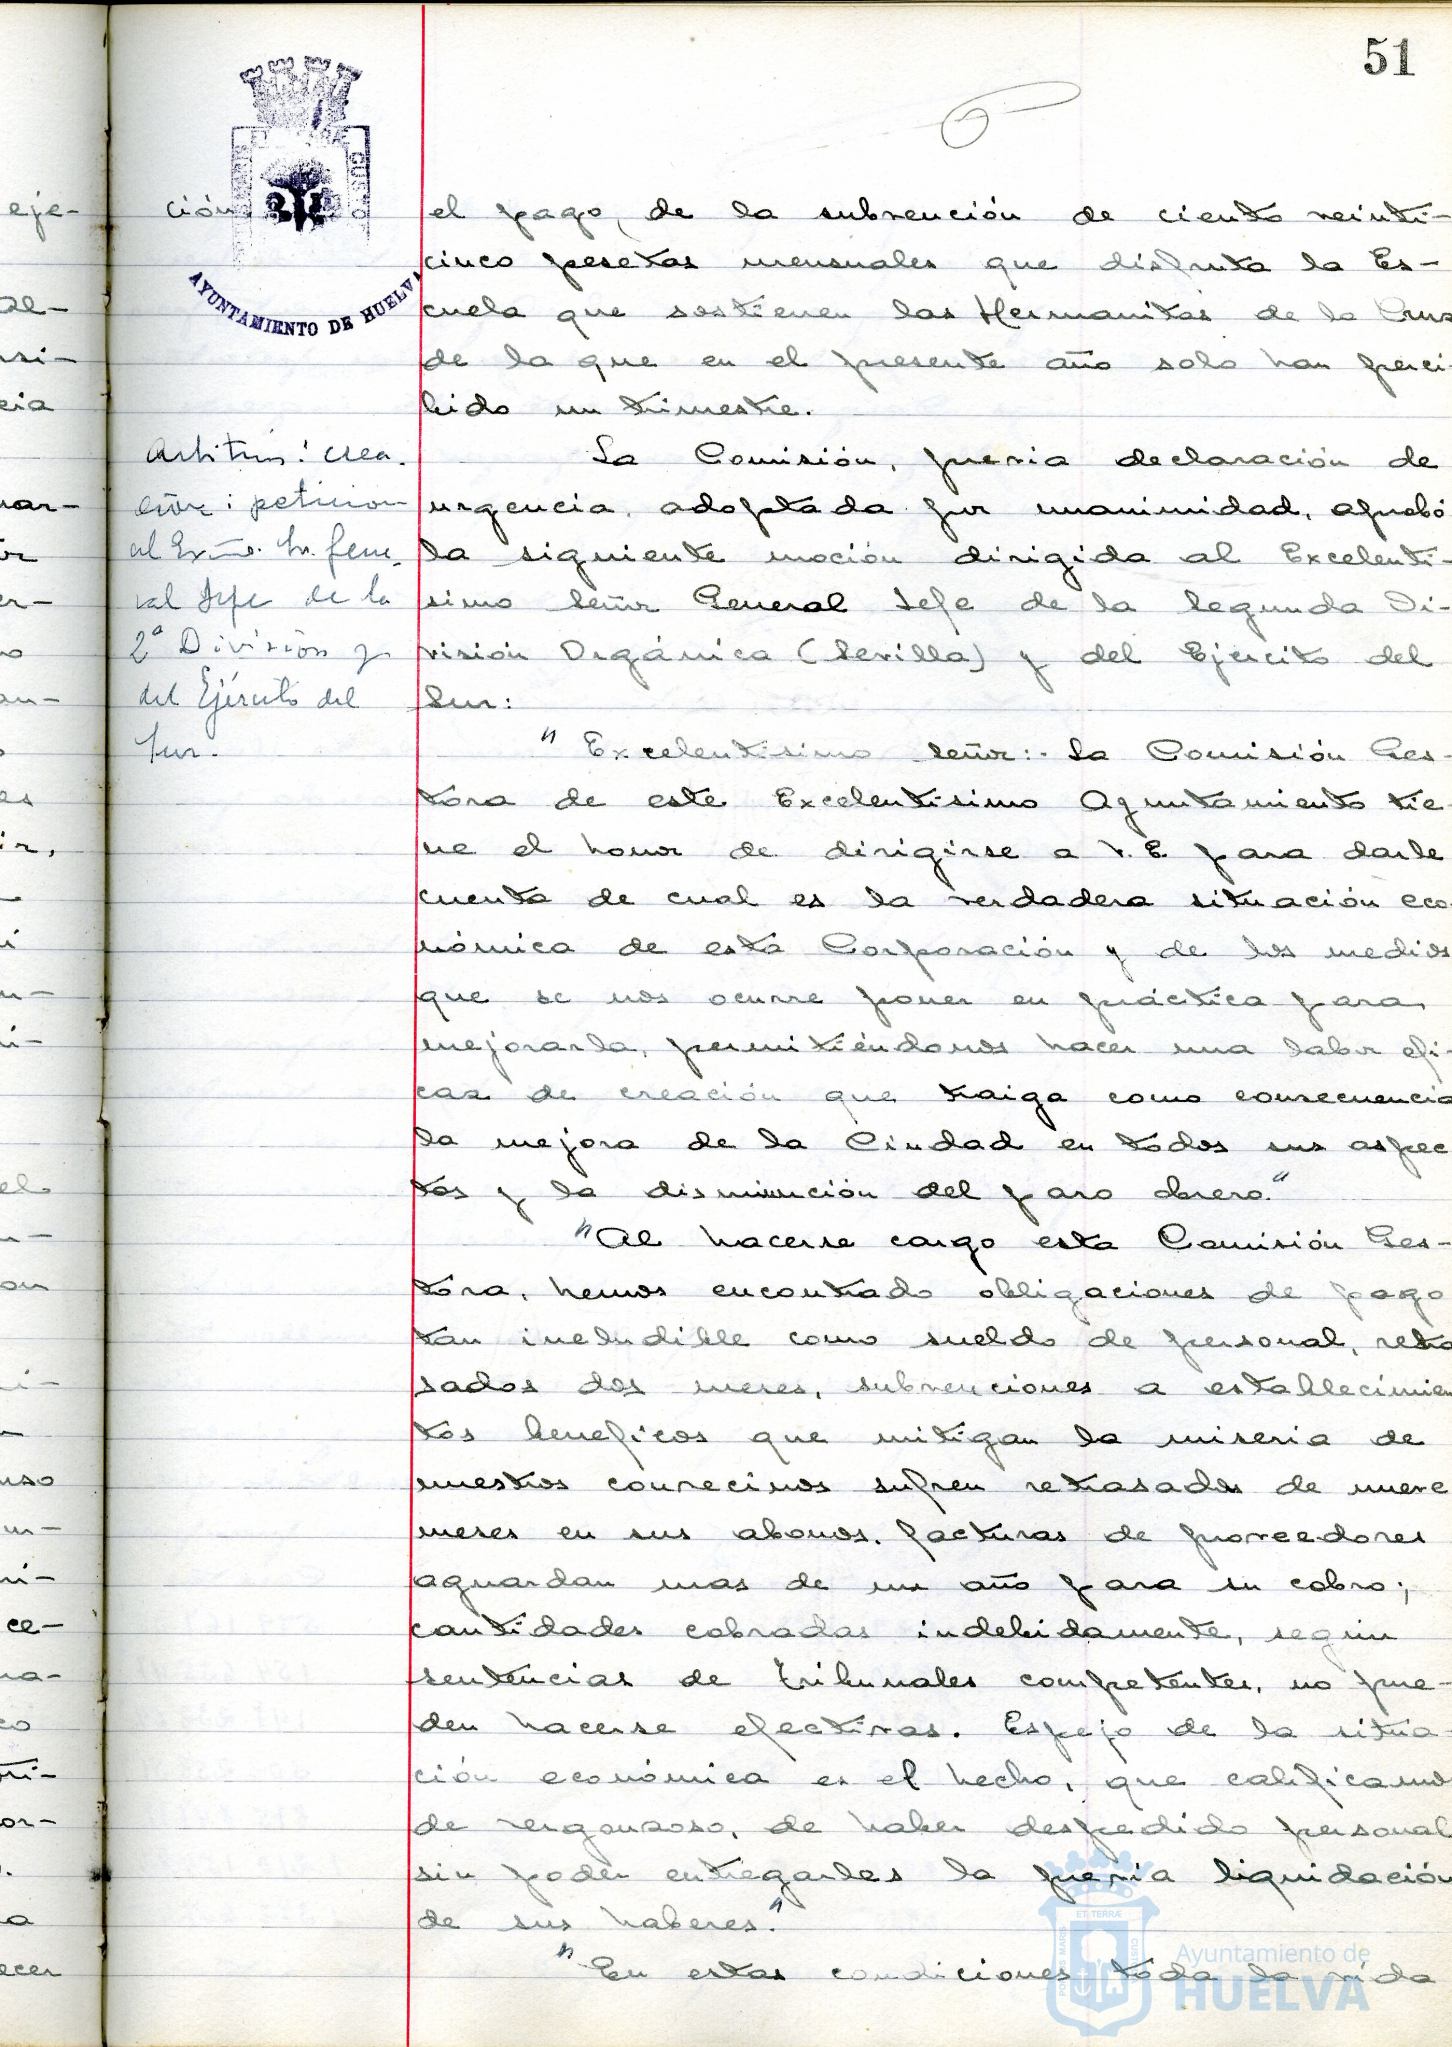 51
ción
AYUNTAMIENTO DE HUELVA
el pago, de la subvención de ciento veinti-
cinco pesetas mensuales que disfruta la Es-
cuela que sostienen las Hermanitas de la Cruz
de la que en el presente año solo han perci-
bido un trimestre.
Arbitrios: crea-
ción: petición
al Exmo. Sr. Gene-
ral Jefe de la
2ª División y
del Ejército del
Sur.
La Comisión, previa declaración de
urgencia, adoptada por unanimidad, aprobó
la siguiente moción dirigida al Excelentí-
simo señor General Jefe de la Segunda Di-
visión Orgánica (Sevilla) y del Ejercito del
Sur:
"Excelentisimo señor:- La Comisión Ges-
tora de este Excelentisimo Ayuntamiento tie-
ne el honor de dirigirse a V.E. para darle
cuenta de cual es la verdadera situación eco-
nómica de esta Corporación y de los medios
que se nos ocurre poner en práctica para
mejorarla, permitiéndonos hacer una labor efi-
caz de creación que traiga como consecuencia
la mejora de la Ciudad en todos sus aspec
tos y la disminución del paro obrero."
"Al hacerse cargo esta Comisión Ges-
tora, hemos encontrado obligaciones de pago
tan ineludible como sueldo de personal, retra
sados dos meses, subvenciones a establecimien
tos beneficos que mitigan la miseria de
nuestros convecinos sufren retrasados de nueve
meses en sus abonos. facturas de proveedores
aguardan mas de un año para su cobro;
cantidades cobradas indebidamente, según
sentencias de tribunales competentes, no pue-
den hacerse efectivas. Espejo de la situa-
ción económica es el hecho, que calificamos
de vergonzoso, de haber despedido personal
sin poder entregarles la previa liquidación
de sus haberes."
"En estas condiciones toda la vida
Ayuntamiento de
HUELVA